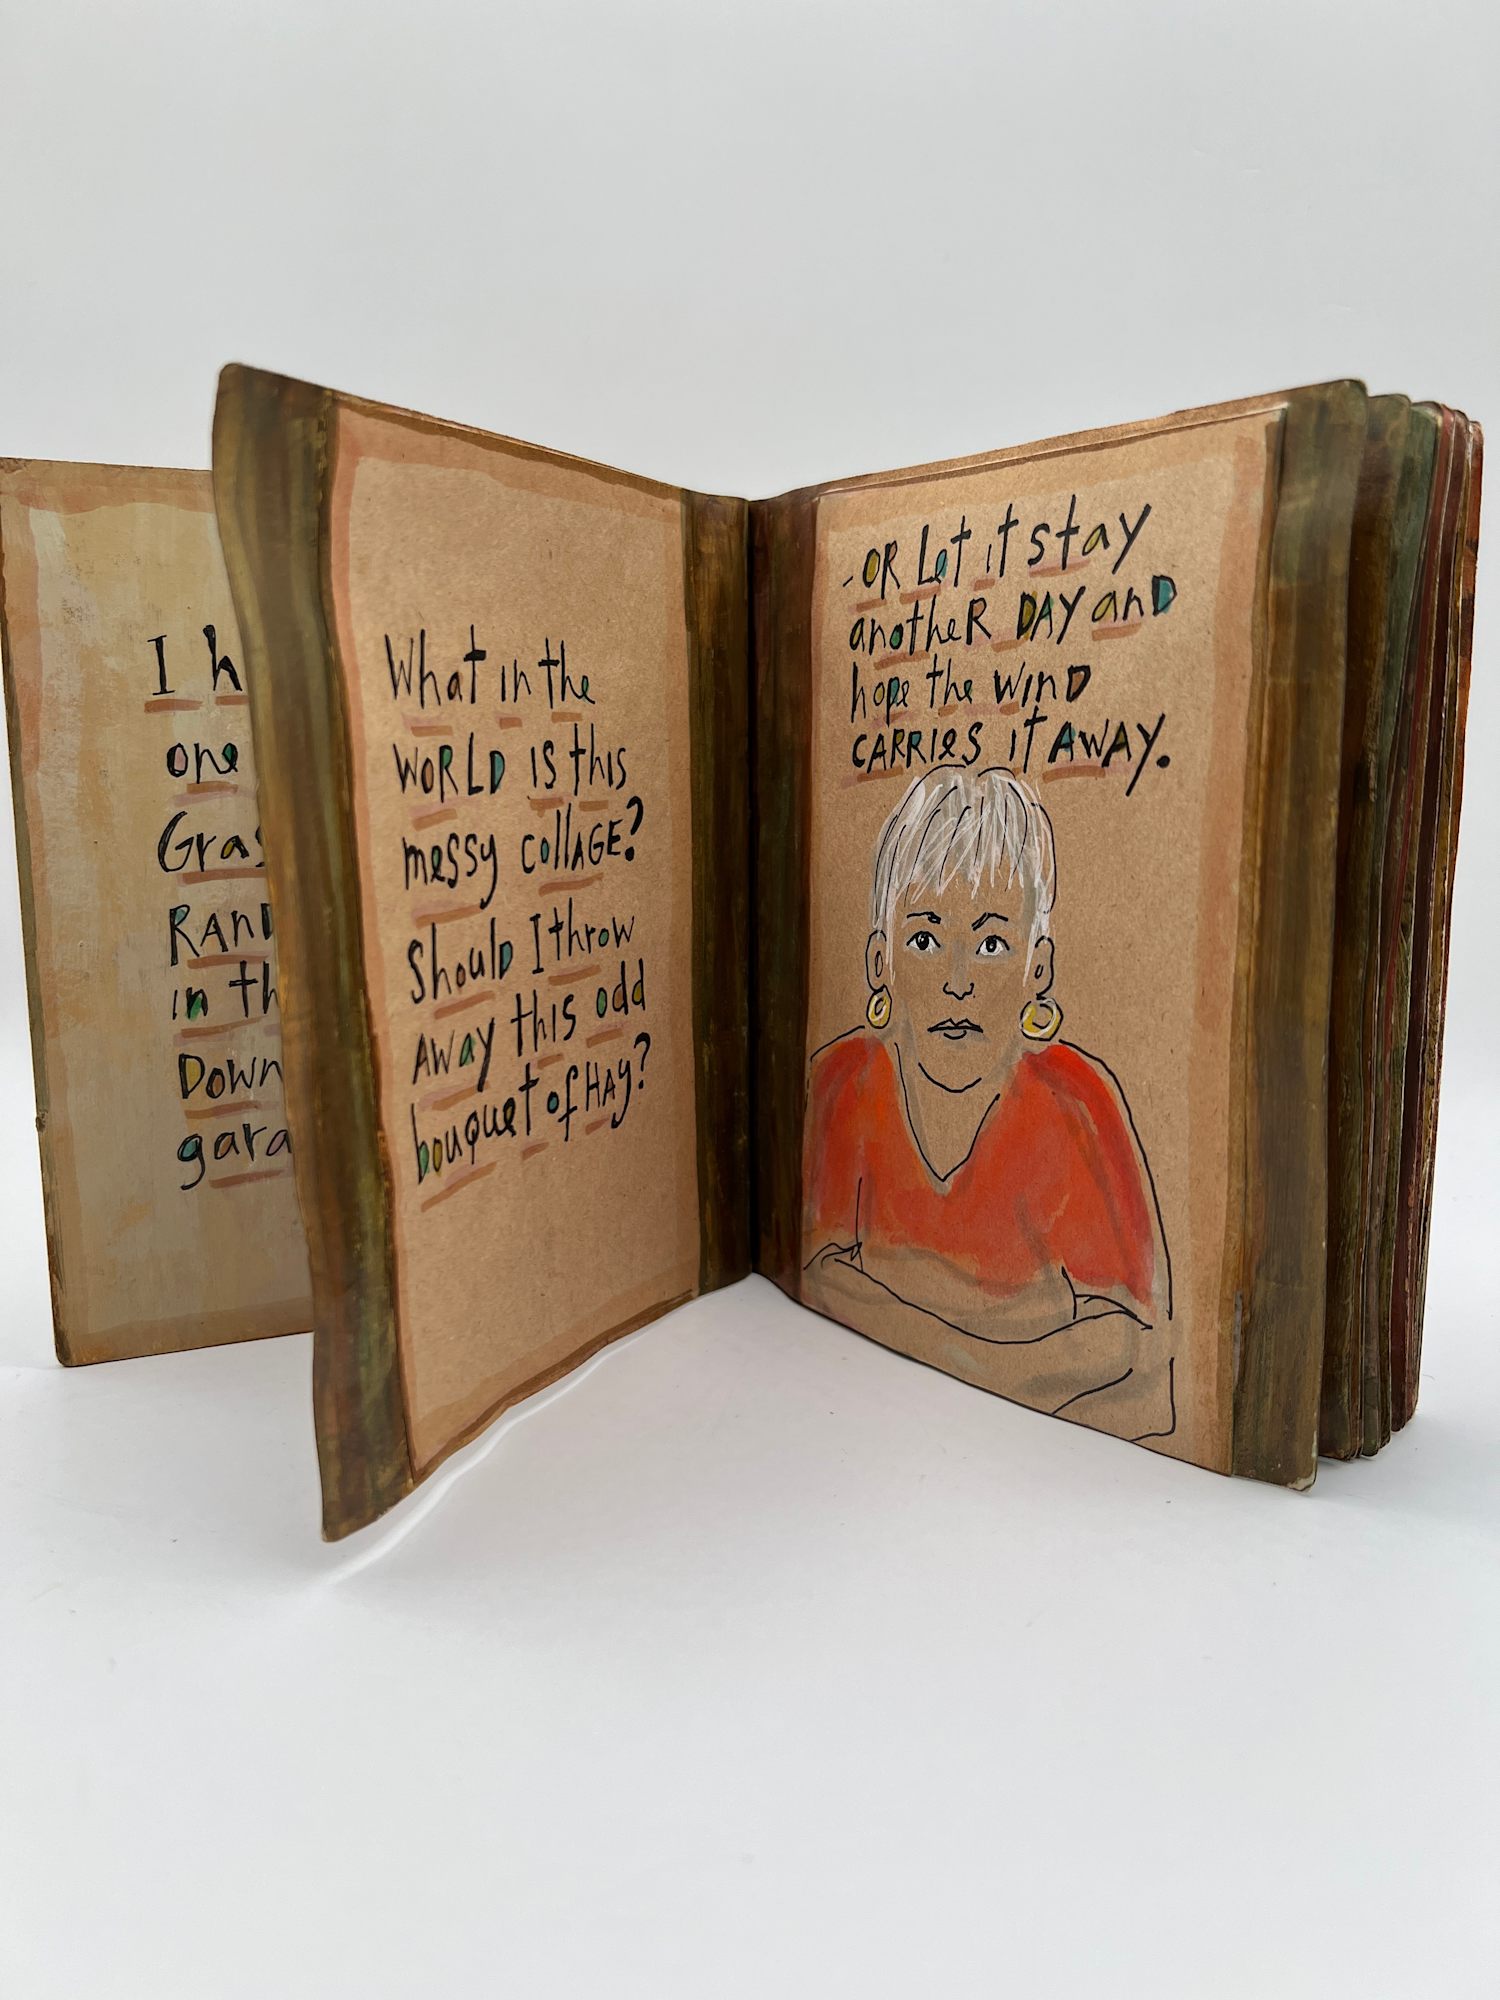 I h
one
Gras
RAND
in th
Down
gara
What in the
WORLD is this
messy collAGE?
Should I throw
AWAY this odd
bouquet of HAY?
-OR Let it stay
anotheR DAY anD
hope the WinD
CARRIES it AWAY.